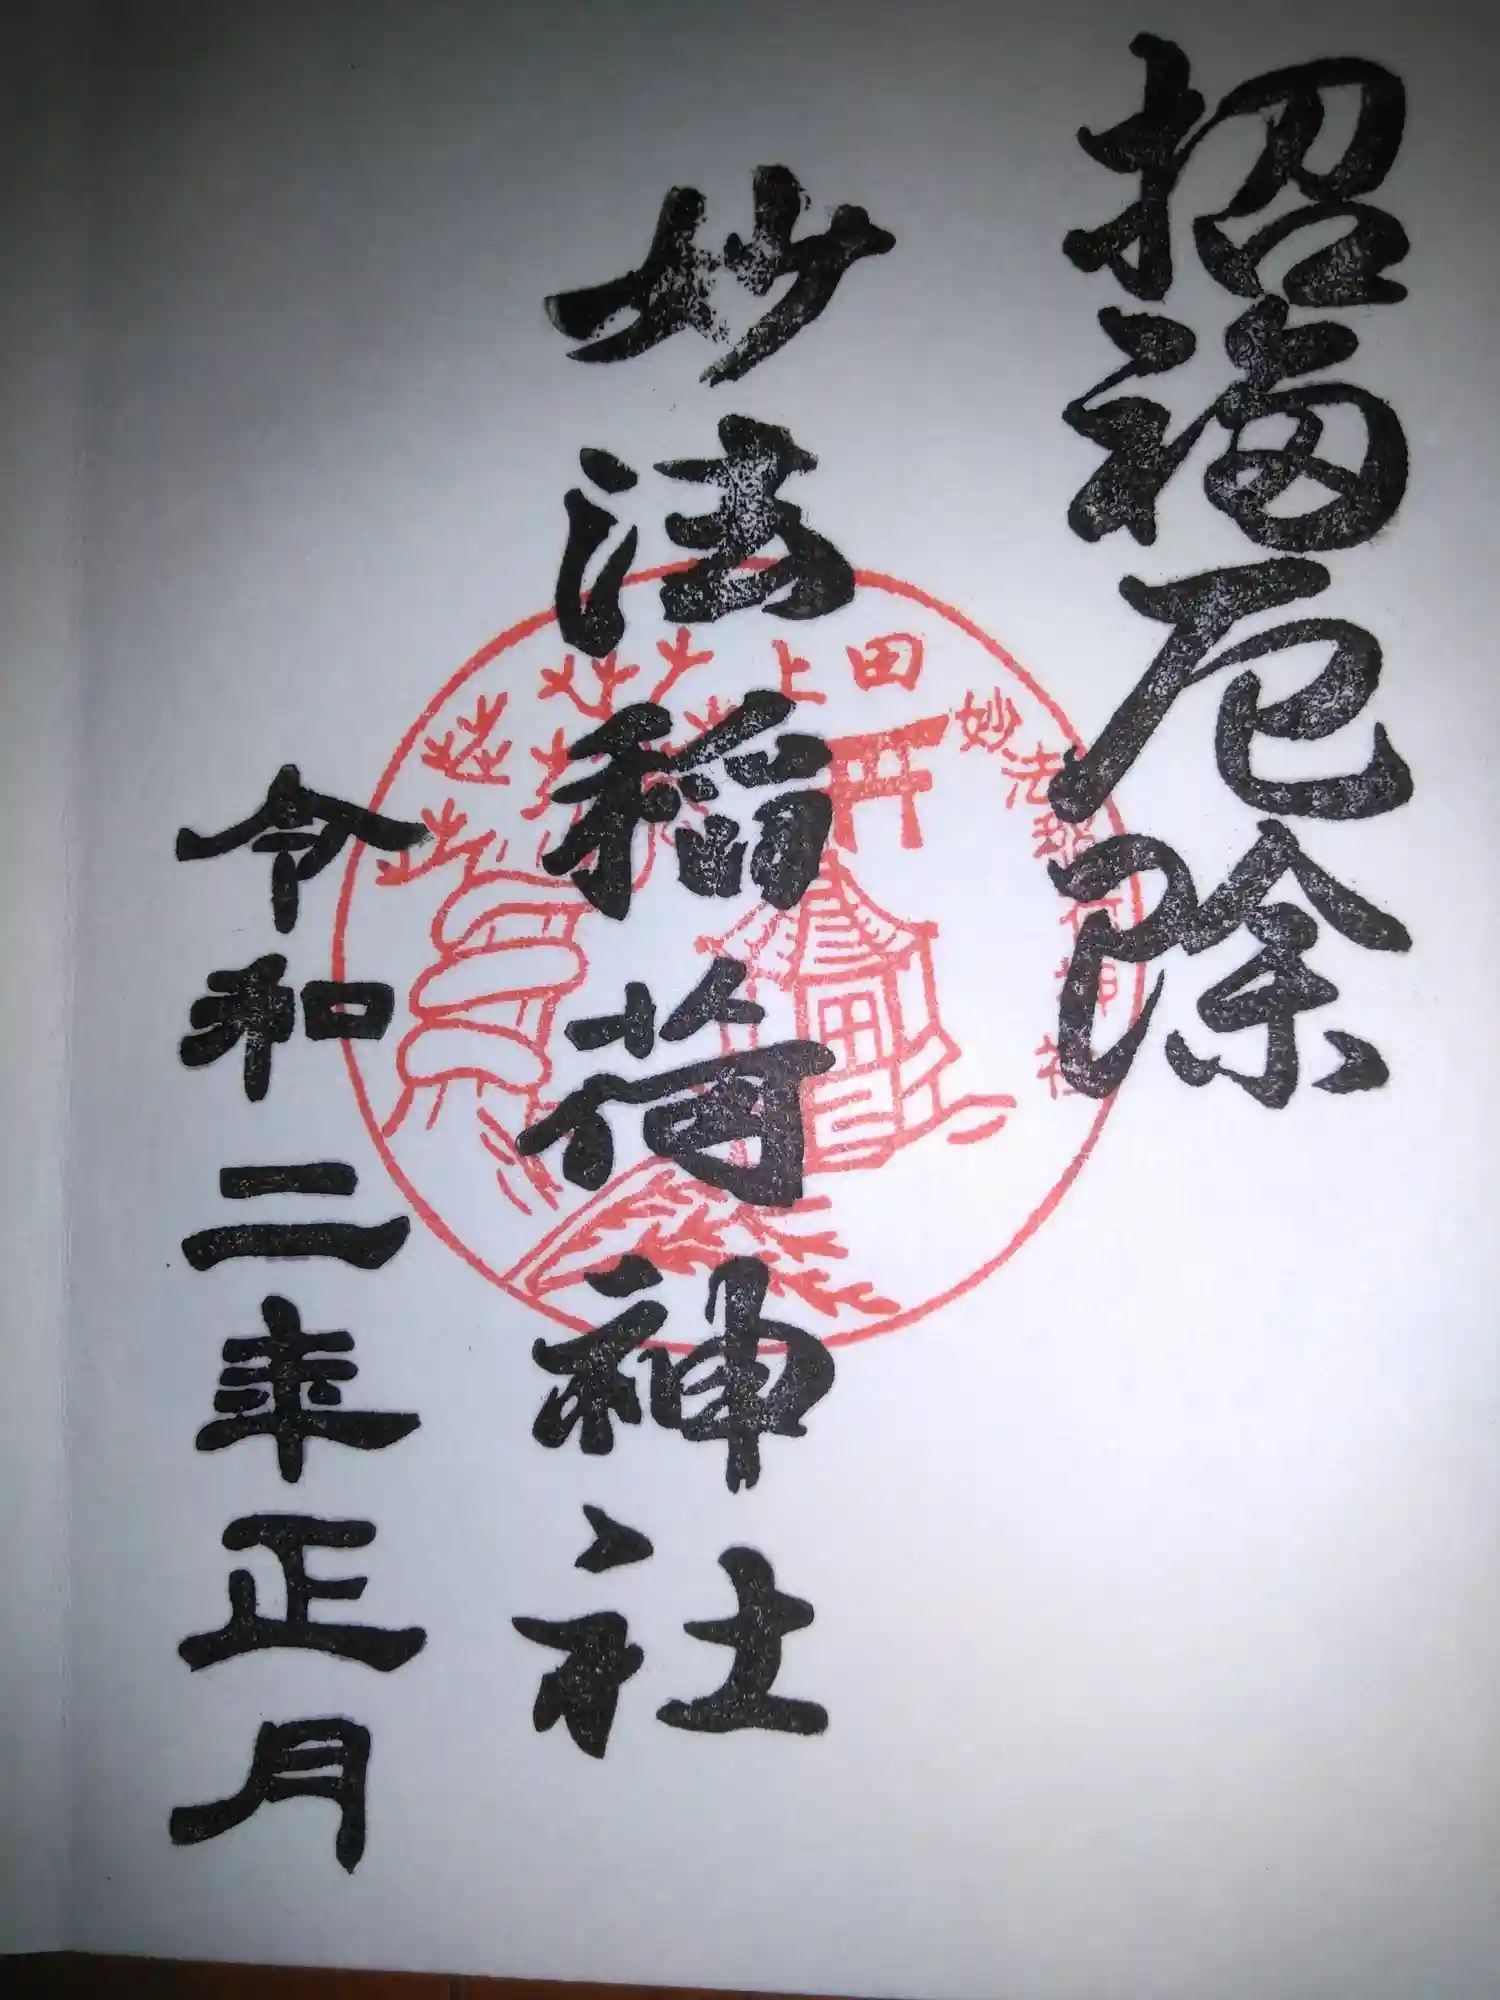 招福厄除
妙法稲荷神社
令和二年正月
上田
妙法稲荷神社